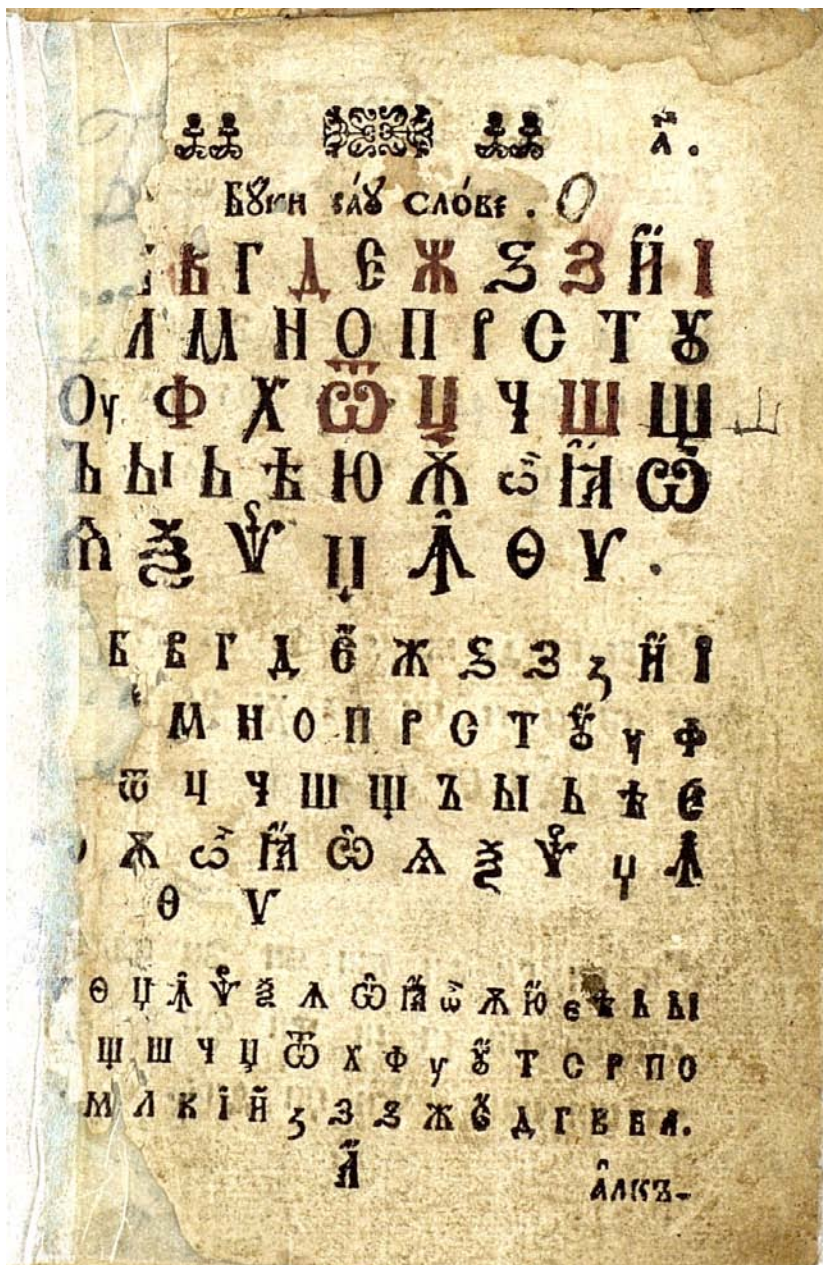 а҃.
Бꙋкн саꙋ слове.
В Г Д Є Ж Ѕ З Й І
Л М Н О П Р С Т Ꙋ
Оу Ф Х Ѿ Ц Ч Ш Щ
Ъ Ы Ь Ѣ Ю Ѫ ѽ Ꙗ Ѽ
Ѧ Ѯ Ѱ Џ Ꙟ Ѳ Ѵ.
Б В Г Д Є Ж Ѕ З ꙁ Й І
М Н О П Р С Т Ꙋ у Ф
Ѿ Ц Ч Ш Щ Ъ Ы Ь Ѣ Є
Ѫ ѽ Ꙗ Ѽ Ѧ Ѯ Ѱ Џ Ꙟ
Ѳ Ѵ
Ѳ Џ Ꙟ Ѱ Ѯ Ѧ Ѽ Ꙗ ѽ Ѫ Ю є Ѣ Ь Ы
Щ Ш Ч Ц Ѿ Х Ф у Ꙋ Т С Р П О
М Л К І Й ꙁ З Ѕ Ж Є Д Г В Б А.
А
алкъ-